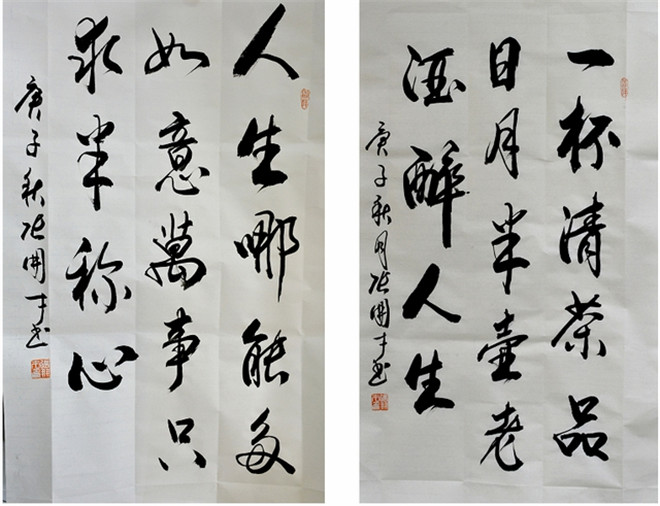 人生哪能多
如意萬事只
求半称心
庚子秋张開才书
一杯清茶品
日月半壺老
酒醉人生
庚子秋月张開才书